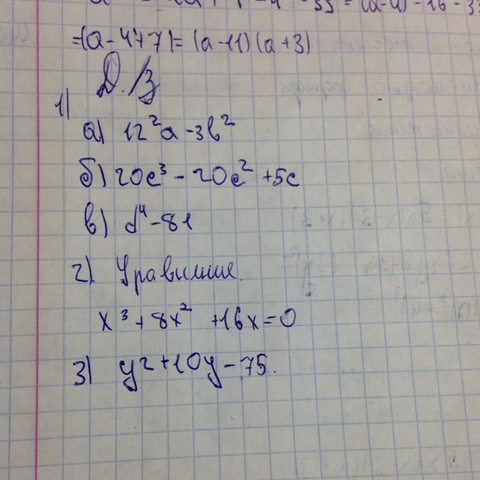 =(a-4+7)= (a-11)(a+3)
Д./з
1)
а) 12²a -3b²
б) 20c³ - 20c² +5c
в) d⁴-81
2) Уравнение.
x³+8x² +16x=0
3) y²+10y-75.